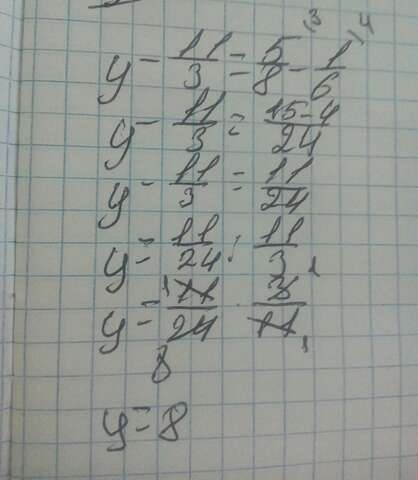 y - 11/3 = 5/8 \3 - 1/6 \4
y - 11/3 = 15-4/24
y - 11/3 = 11/24
y = 11/24 : 11/3
y = 11/24 · 3/11
8
y = 8